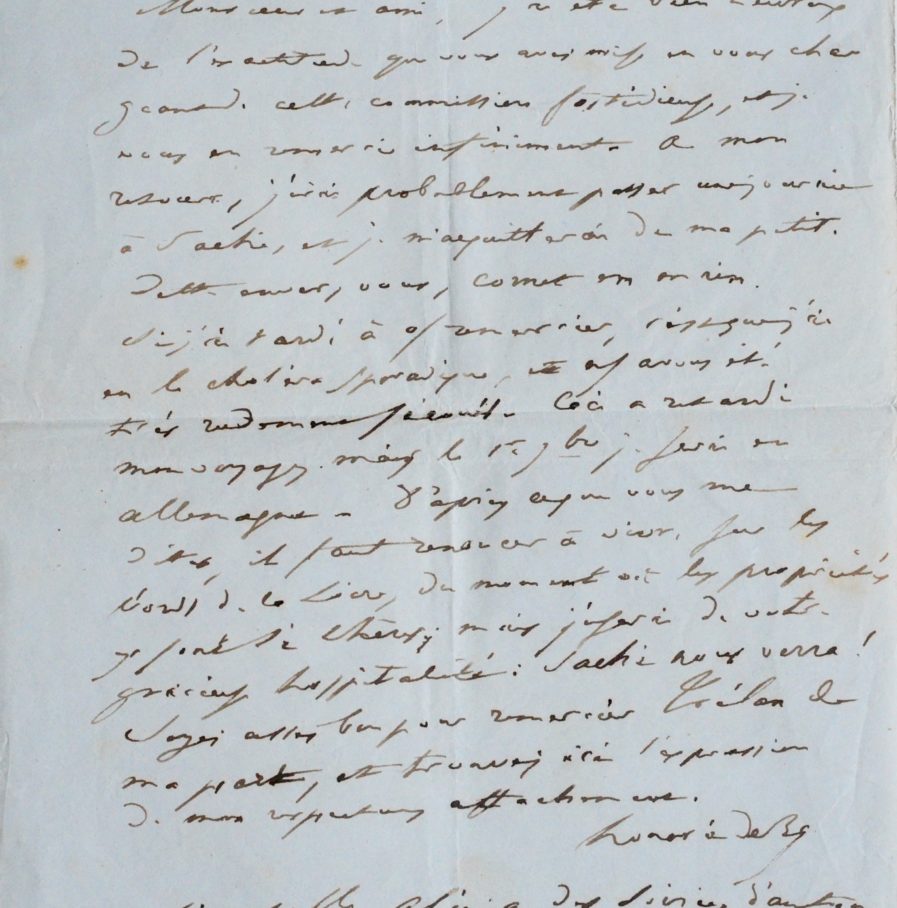 Monsieur et ami, j'ai été bien heureux
de l'exactitude que vous avez mise en vous char
geant de cette commission fastidieuse, et je
vous en remercie infiniment. A mon
retour, j'irai probablement passer une journée
à Saché, et je m'acquitterai de ma petite
dette envers vous, comet en
Si j'ai tardé à remercier, c'est que j'ai
eu le choléra sporadique, et en avons été
très rudement secoué. Ceci a retardé
mon voyage, mais le 1er 9bre je serai en
allemagne - D'après ce que vous me
dites, il faut renoncer à vivre sur les
bords de la Loire, du moment où les propriétés
y sont si chères; mais j'userai de votre
gracieuse hospitalité: Saché nous verra!
Soyez assez bon pour remercier Trélan de
ma part, et trouvez ici l'expression
de mon respectueux attachement.
honoré de Bc
des d'autres